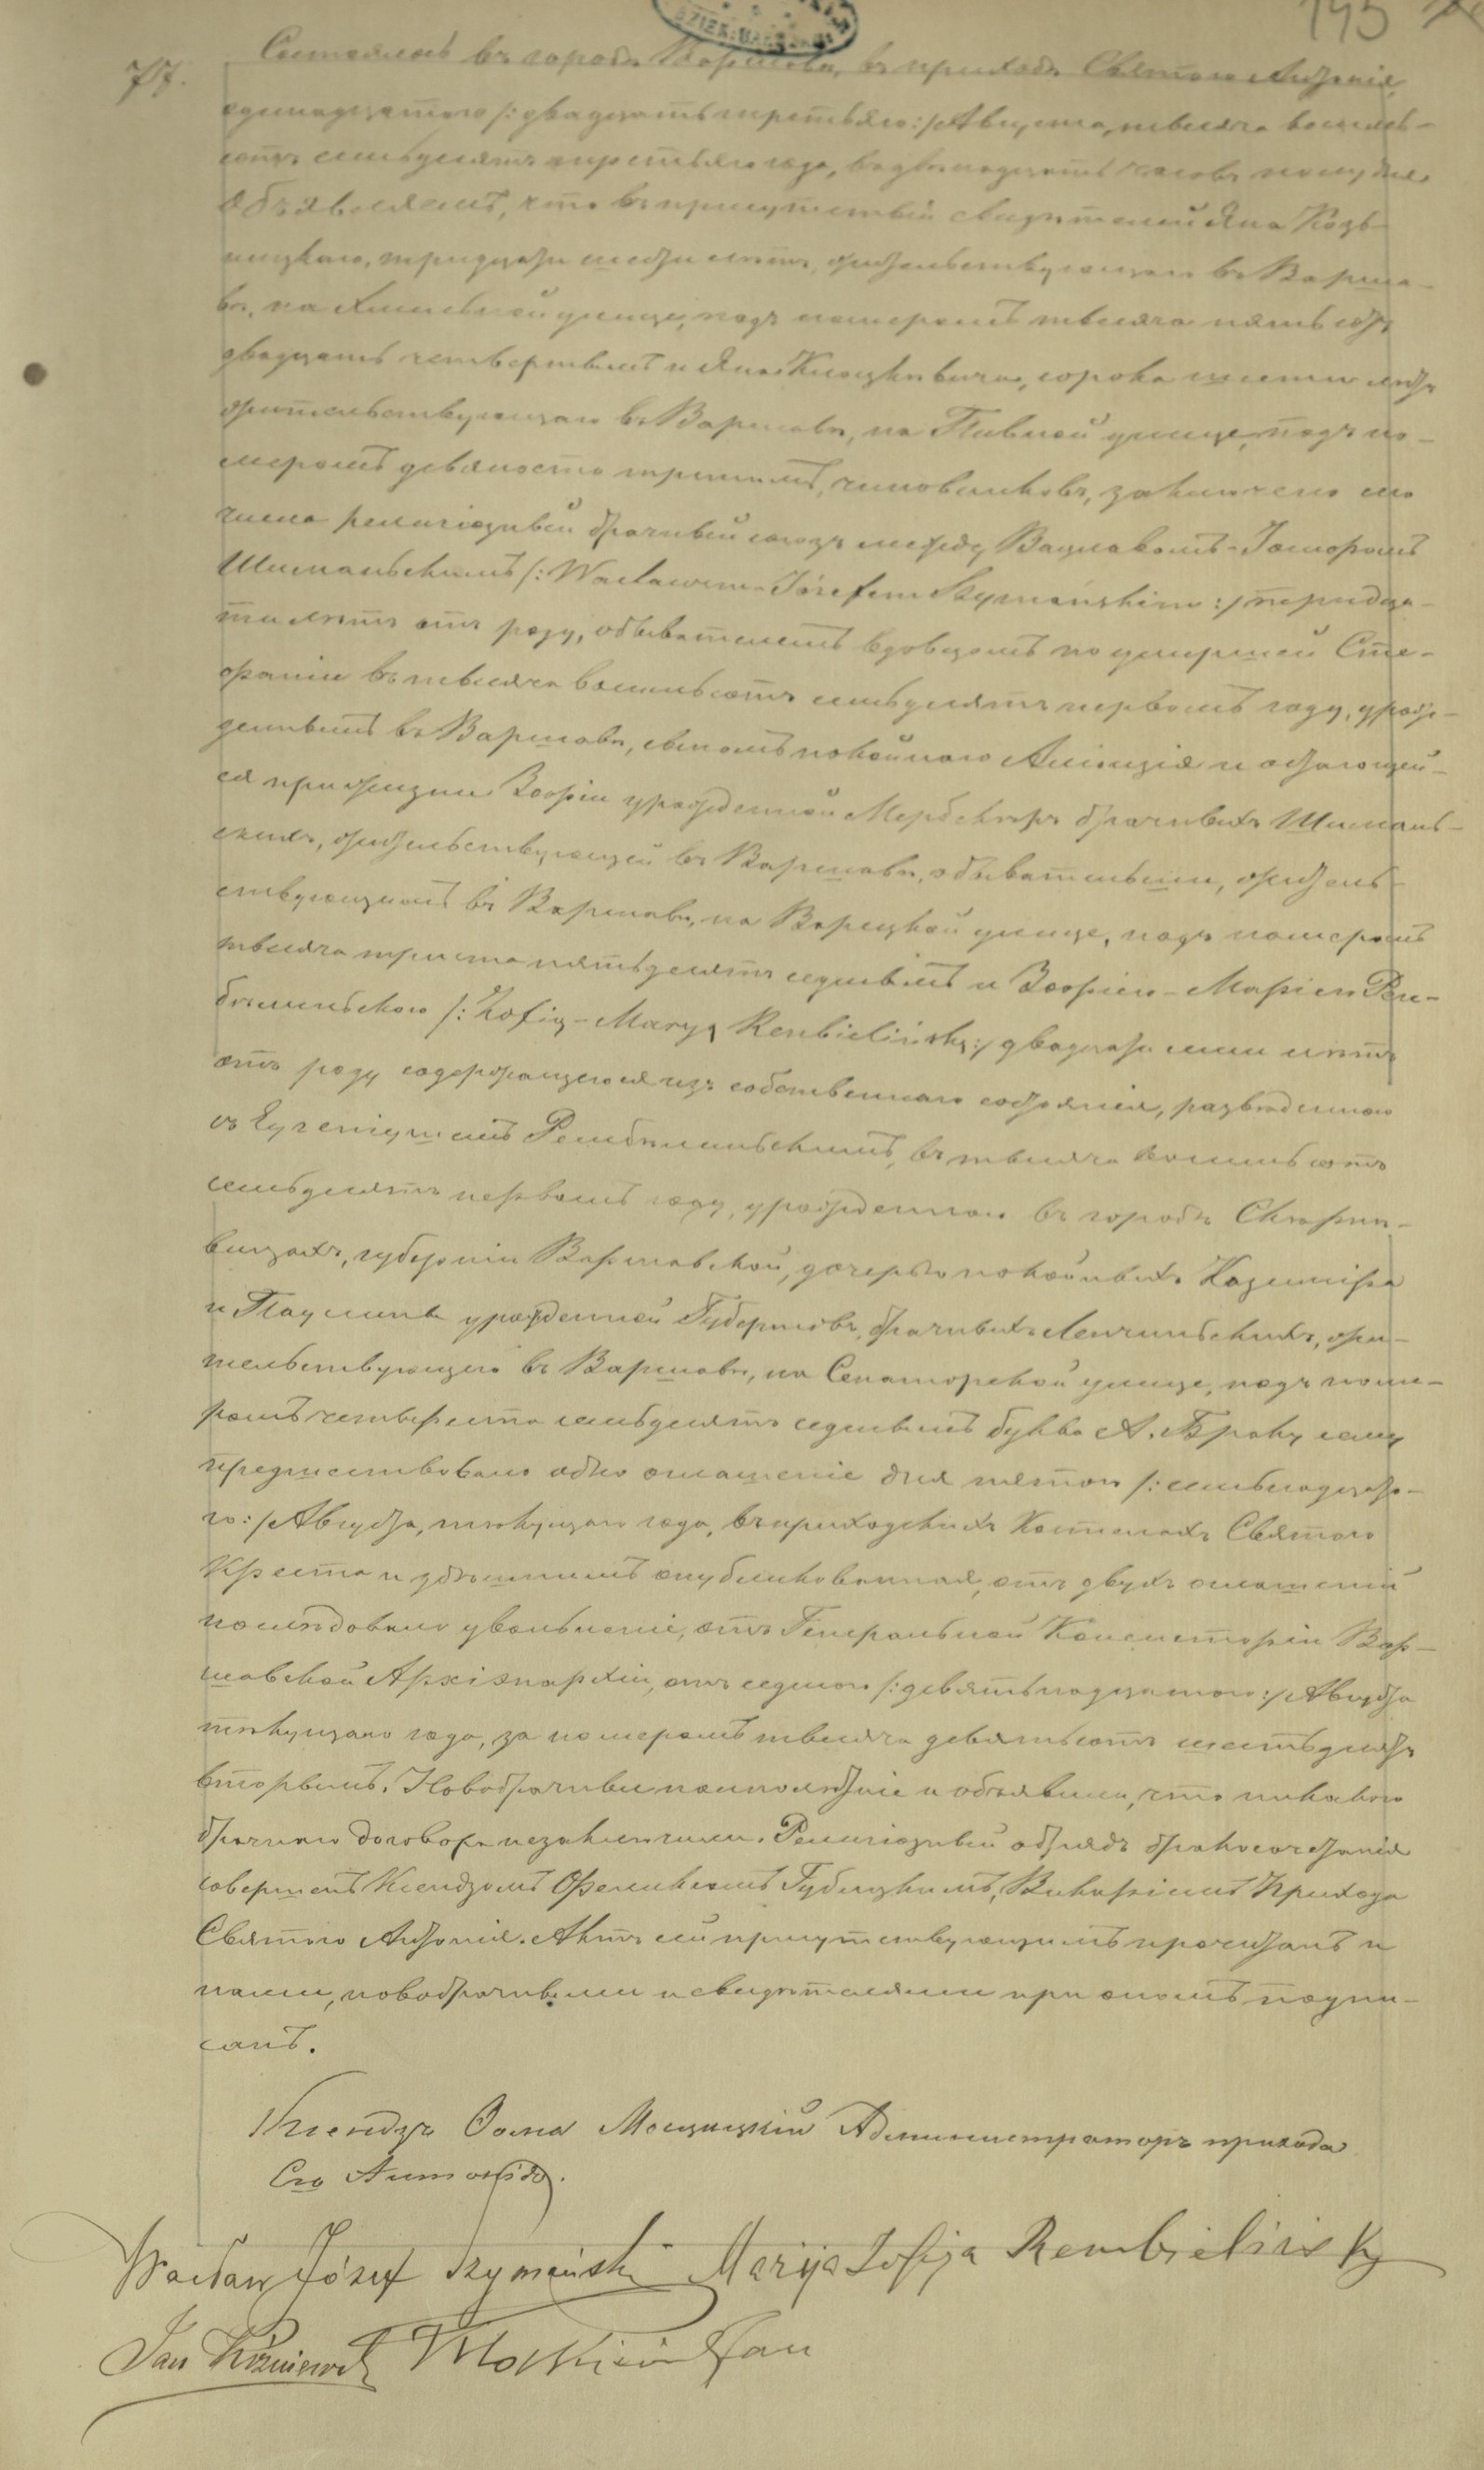 195
77.
Состоялось въ городѣ Варшавѣ, въ приходѣ Святаго Антонія,
одиннадцатаго /: двадцать третьяго :/ Августа, тысяча восемь-
сотъ семьдесятъ третьяго года, въ двѣнадцать часовъ пополудни
Объявляемъ, что въ присутствіи свидѣтелей Яна
тридцати шести лѣтъ, жительствующаго въ Варша-
вѣ, на улице, подъ номеромъ тысяча пять сотъ
двадцать четвертымъ и Яна сорока шести лѣтъ
жительствующаго въ Варшавѣ, на Пивной улице, подъ но-
меромъ девяносто третьимъ, чиновниковъ, заключено сего
числа религіозный брачный союзъ между Вацлавомъ-Іосифомъ
Шиманьскимъ /: Wacławem-Józefem Szymańskim :/ тридца-
ти лѣтъ отъ роду, обывателемъ вдовцомъ по умершей Сте-
фаніи въ тысяча восемьсотъ семьдесятъ первомъ году, урож-
деннымъ въ Варшавѣ, сыномъ покойнаго и остающей-
ся при жизни Зофіи урожденной брачныхъ Шимань-
скихъ, жительствующей въ Варшавѣ, обывательши, житель-
ствующимъ въ Варшавѣ, на Варецкой улице, подъ номеромъ
тысяча триста пятьдесятъ седмымъ и Зофіею-Маріею Рем-
бѣлиньскою /: Zofią-Maryą Rembielińską :/ двадцати семи лѣтъ
отъ роду содержащеюся изъ собственнаго состоянія, разведенною
съ Еугеніушемъ Рембѣлиньскимъ, въ тысяча восемьсотъ
семьдесятъ первомъ году, урожденною въ городѣ Скерне-
вицахъ, губерніи Варшавской, дочерью покойныхъ Казиміра
и Паулины урожденной Губертовъ, брачныхъ Ленчиньскихъ, жи-
тельствующею въ Варшавѣ, на Сенаторской улице, подъ номе-
ромъ четыреста семьдесятъ седмымъ буква А. Браку сему
предшествовало одно оглашеніе дня пятаго /: семьнадцата-
го :/ Августа, текущаго года, въ приходскихъ Костелахъ Святаго
Креста и здѣшнимъ опубликованная, отъ двухъ оглашеній
послѣдовало увольненіе, отъ Генеральной Консисторіи Вар-
шавской Архіэпархіи, отъ седмаго /: девятьнадцатаго :/ Августа
текущаго года, за номеромъ тысяча девятьсотъ шестьдесятъ
вторымъ. Новобрачныи объявили, что никакого
брачнаго договора незаключили. Религіозный обрядъ бракосочетанія
совершенъ Ксендзомъ Феликсомъ Викаріемъ Прихода
Святаго Антонія. Актъ сей присутствующимъ прочитанъ и
нами, новобрачными и свидѣтелями при ономъ подпи-
санъ.
Ксендзъ Ѳома Администраторъ прихода
Сго Антонія.
Wacław Józef Szymański Maryja Zofija Rembielińska
Jan Jan